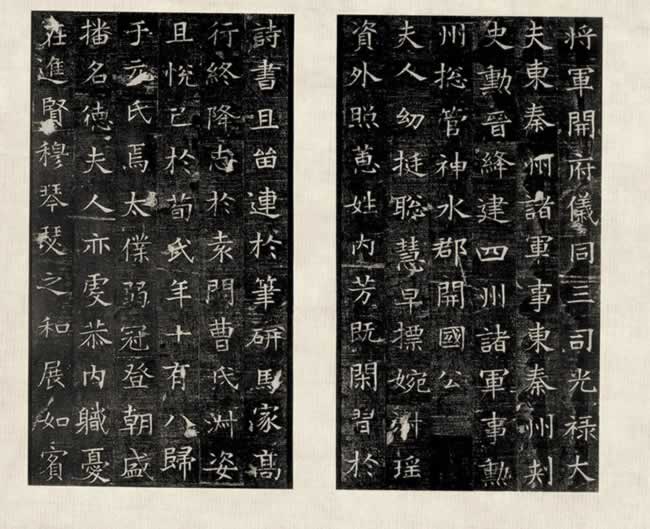 将軍開府儀同三司光禄大
夫東秦州諸軍事東秦州刾
史勳晉絳建四州諸軍事勲
州揔管神水郡開國公
夫人幼挺聡慧早摽婉淑瑶
資外照蕙姓内芳既閑習於
詩書且留連於筆研馬家髙
行終降志於袁門曹氏淑姿
且悦己於荀氏年十有八歸
于元氏焉太僕弱冠登朝盛
播名德夫人亦虔恭内職憂
在進賢穆琴瑟之和展如賓